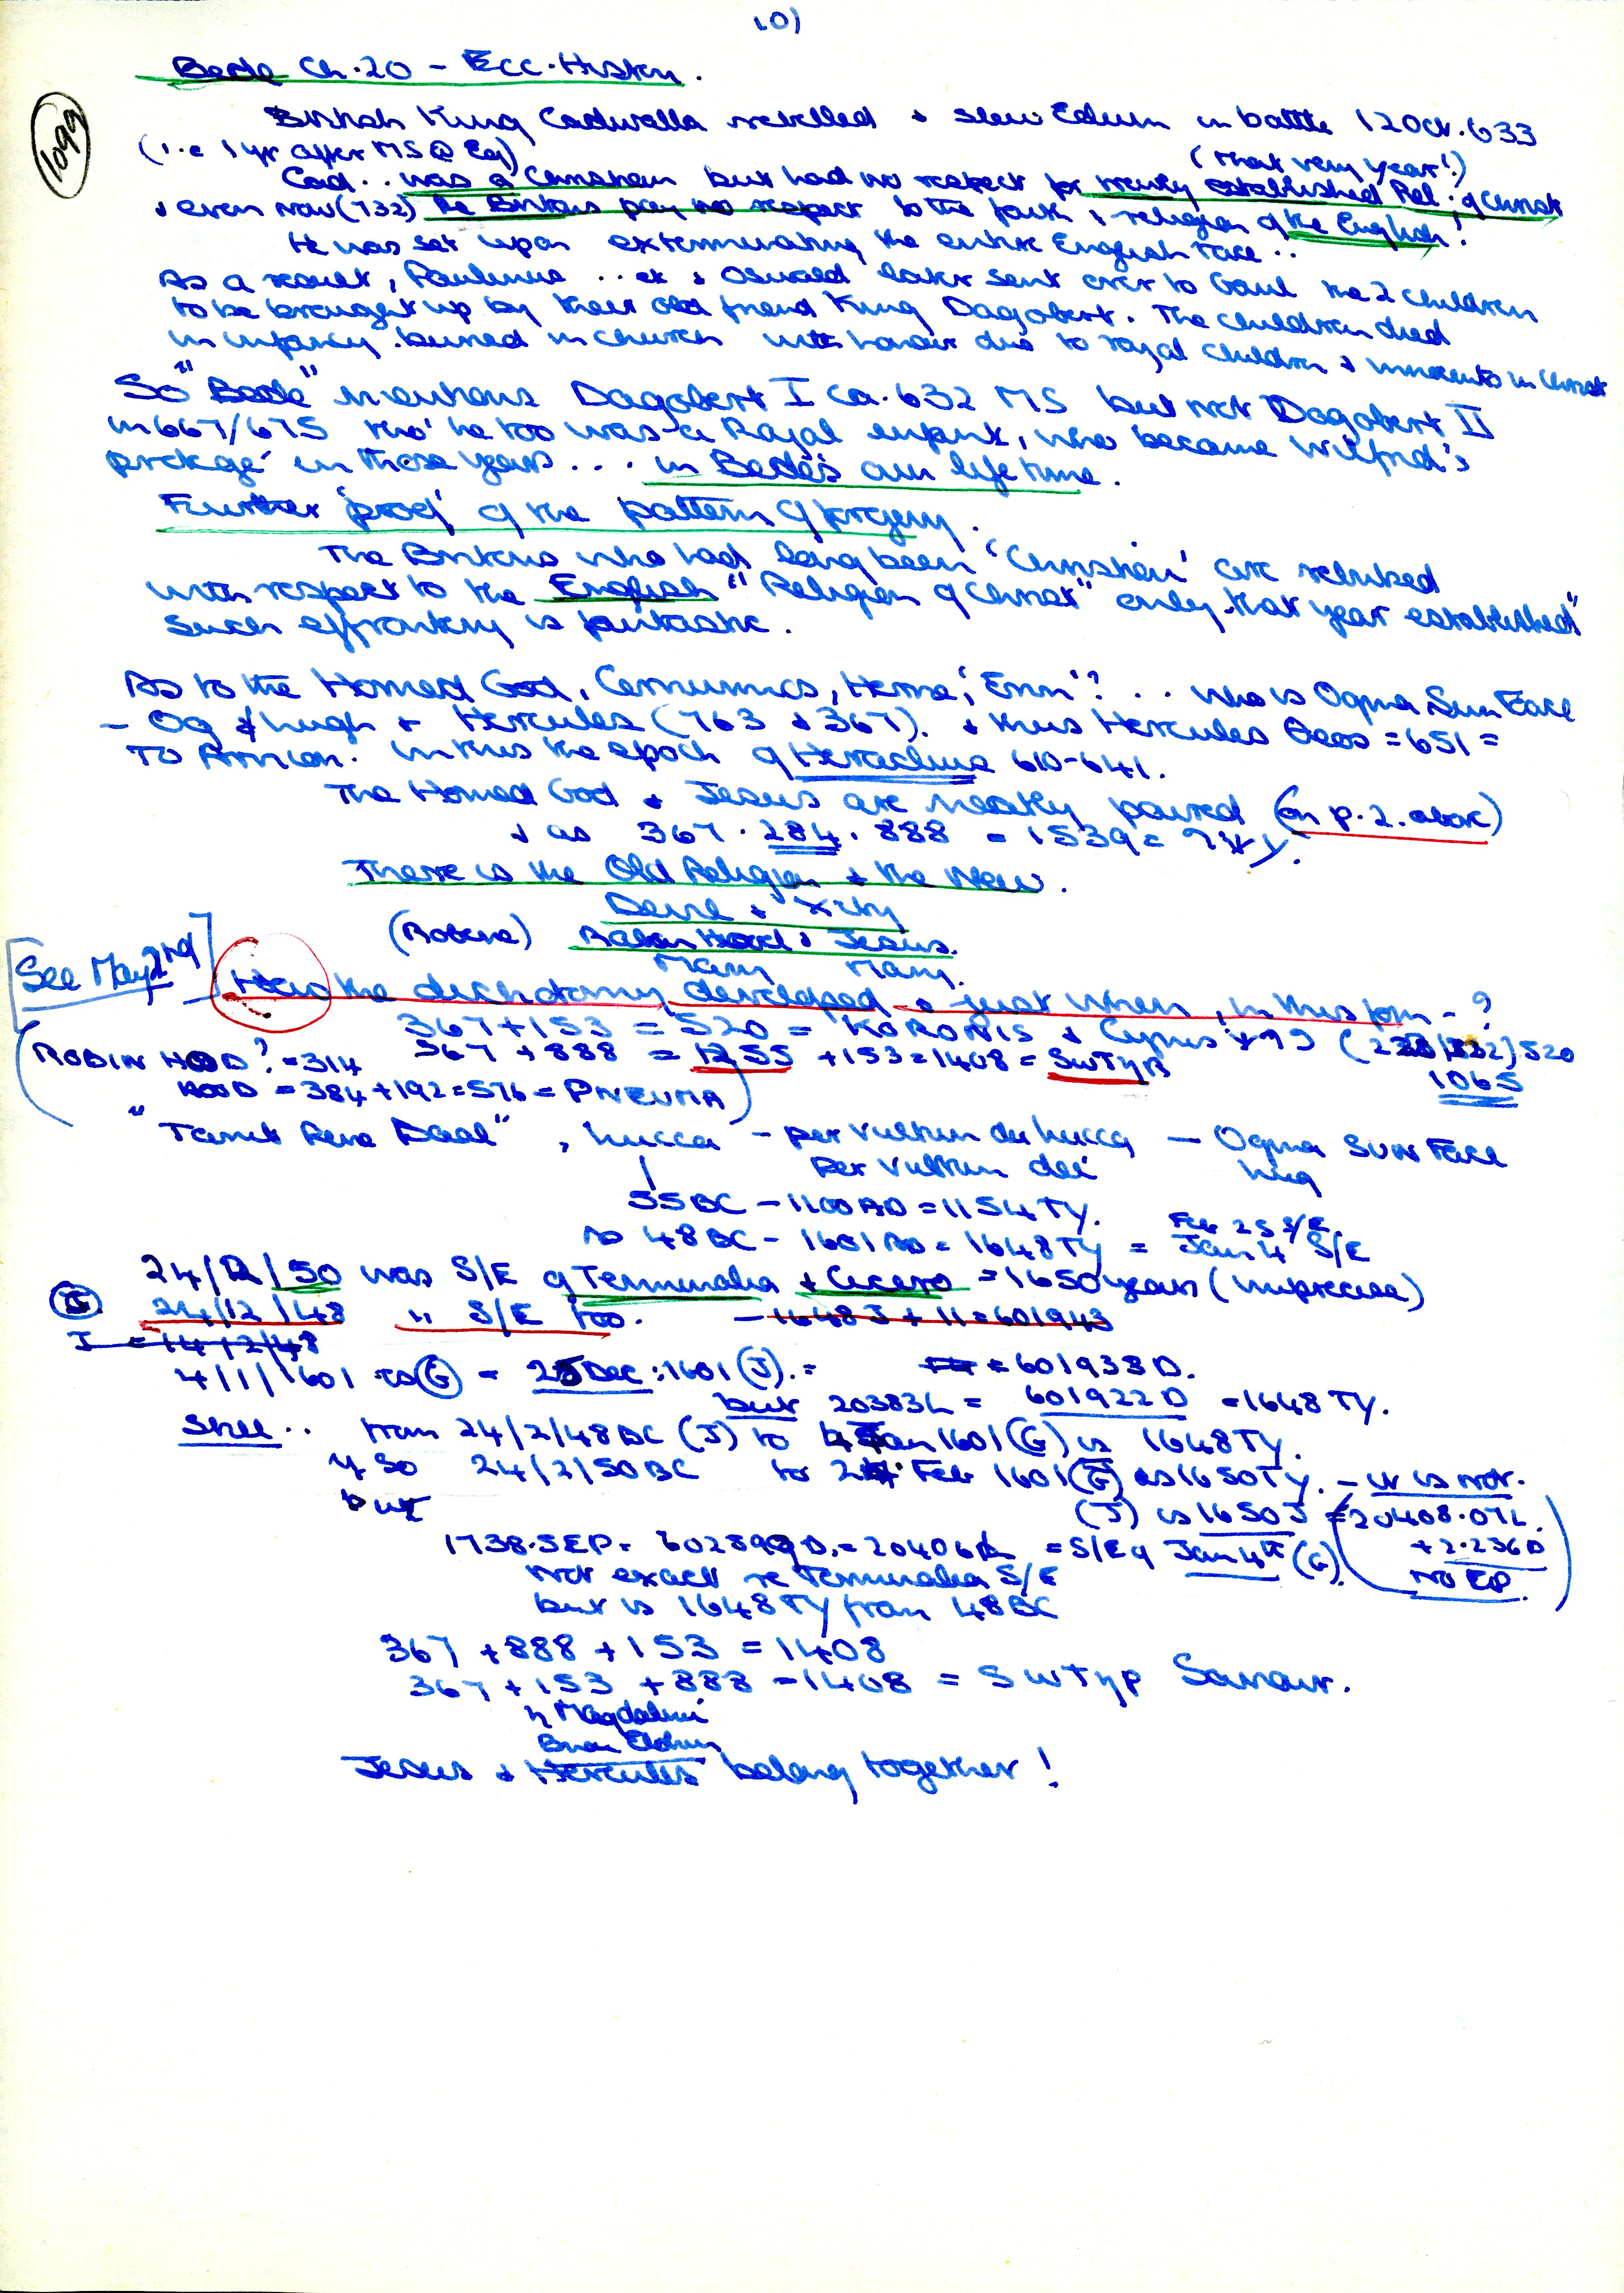 10)
1099
Bede Ch.20 - Ecc. History.
British King Cadwalla rebelled & slew Edwin in battle 12 Oct. 633
(i.e 1 yr after MS @ Eq) (that very year!)
Cad.. was a Christian but had no respect for newly established Rel. of Christ
& even now (732) the Britons pay no respect to the faith & religion of the English!
He was set upon exterminating the entire English race..
As a result, Paulinus .. et & Oswald later sent over to Gaul the 2 children
to be brought up by their old friend King Dagobert. The children died
in infancy. buried in church with honour due to royal children & innocents in Christ
So "Bede" mentions Dagobert I ca. 632 MS but not Dagobert II
in 667/675 tho' he too was a Royal infant, who became Wilfrid's
protegé in those years... in Bede's own life time.
Further 'proof' of the pattern of forgery.
The Britons who had long been 'Christian' are rebuked
with respect to the English "Religion of Christ" only "that year established"
Such effrontery is fantastic.
As to the Horned God, Cernunnos, Herne, 'Errn'? .. who is Ogma Sun Face
- Og & Lugh & Hercules (763 & 367). & thus Hercules Theos = 651 =
To Arrion. In this the epoch of Heraclius 610-641.
The Horned God & Jesus are neatly paired (on p.2. above)
& as 367 . 284 . 888 = 1539 =
There is the Old Religion & the New.
Devil & Xity
(Robene) Robin Hood & Jesus.
Marn Mary.
[See May 2nd] How the dichotomy developed & just when, in this form - ?
367 + 153 = 520 = KORONIS & Cygnus 520
(ROBIN HOOD? = 314 367 + 888 = 1255 + 153 = 1408 = SwTyp 1065
HOOD = 384 + 192 = 576 = PNEUMA)
"Tanit Pene Baal", Lucca - per vultum du Lucca - Ogma SUN Face
per vultum dei Lug
55 BC - 1100 AD = 1154 TY.
Feb 25 S/E
As 48 BC - 1601 AD = 1648 TY = Jan 4 S/E
24/12/50 was S/E of Terminalia & Cicero = 1650 years (imprecise)
24/12/48 " S/E too. - 1648 J + 11 = 601943
J = 14/2/48
4/1/1601 as (G) = 25 Dec: 1601 (J). = = 601938 D.
but 20383 L = 601922 D = 1648 TY.
Still.. from 24/2/48 BC (J) to 4 Jan 1601 (G) is 1648 TY.
if so 24/2/50 BC to 24 Feb 1601 (G) is 1650 TY. - it is not.
but (J) is 1650 J = (20408.07 L.
1738.5 EP = 602899 D. = 20406 L = S/E of Jan 4th (G) + 2.236 D
not exact re Terminalia S/E NO EP.)
but is 1648 TY from 48 BC
367 + 888 + 153 = 1408
367 + 153 + 888 = 1408 = SwTyp Saviour.
h Magdalini
Jesus & Hercules belong together!